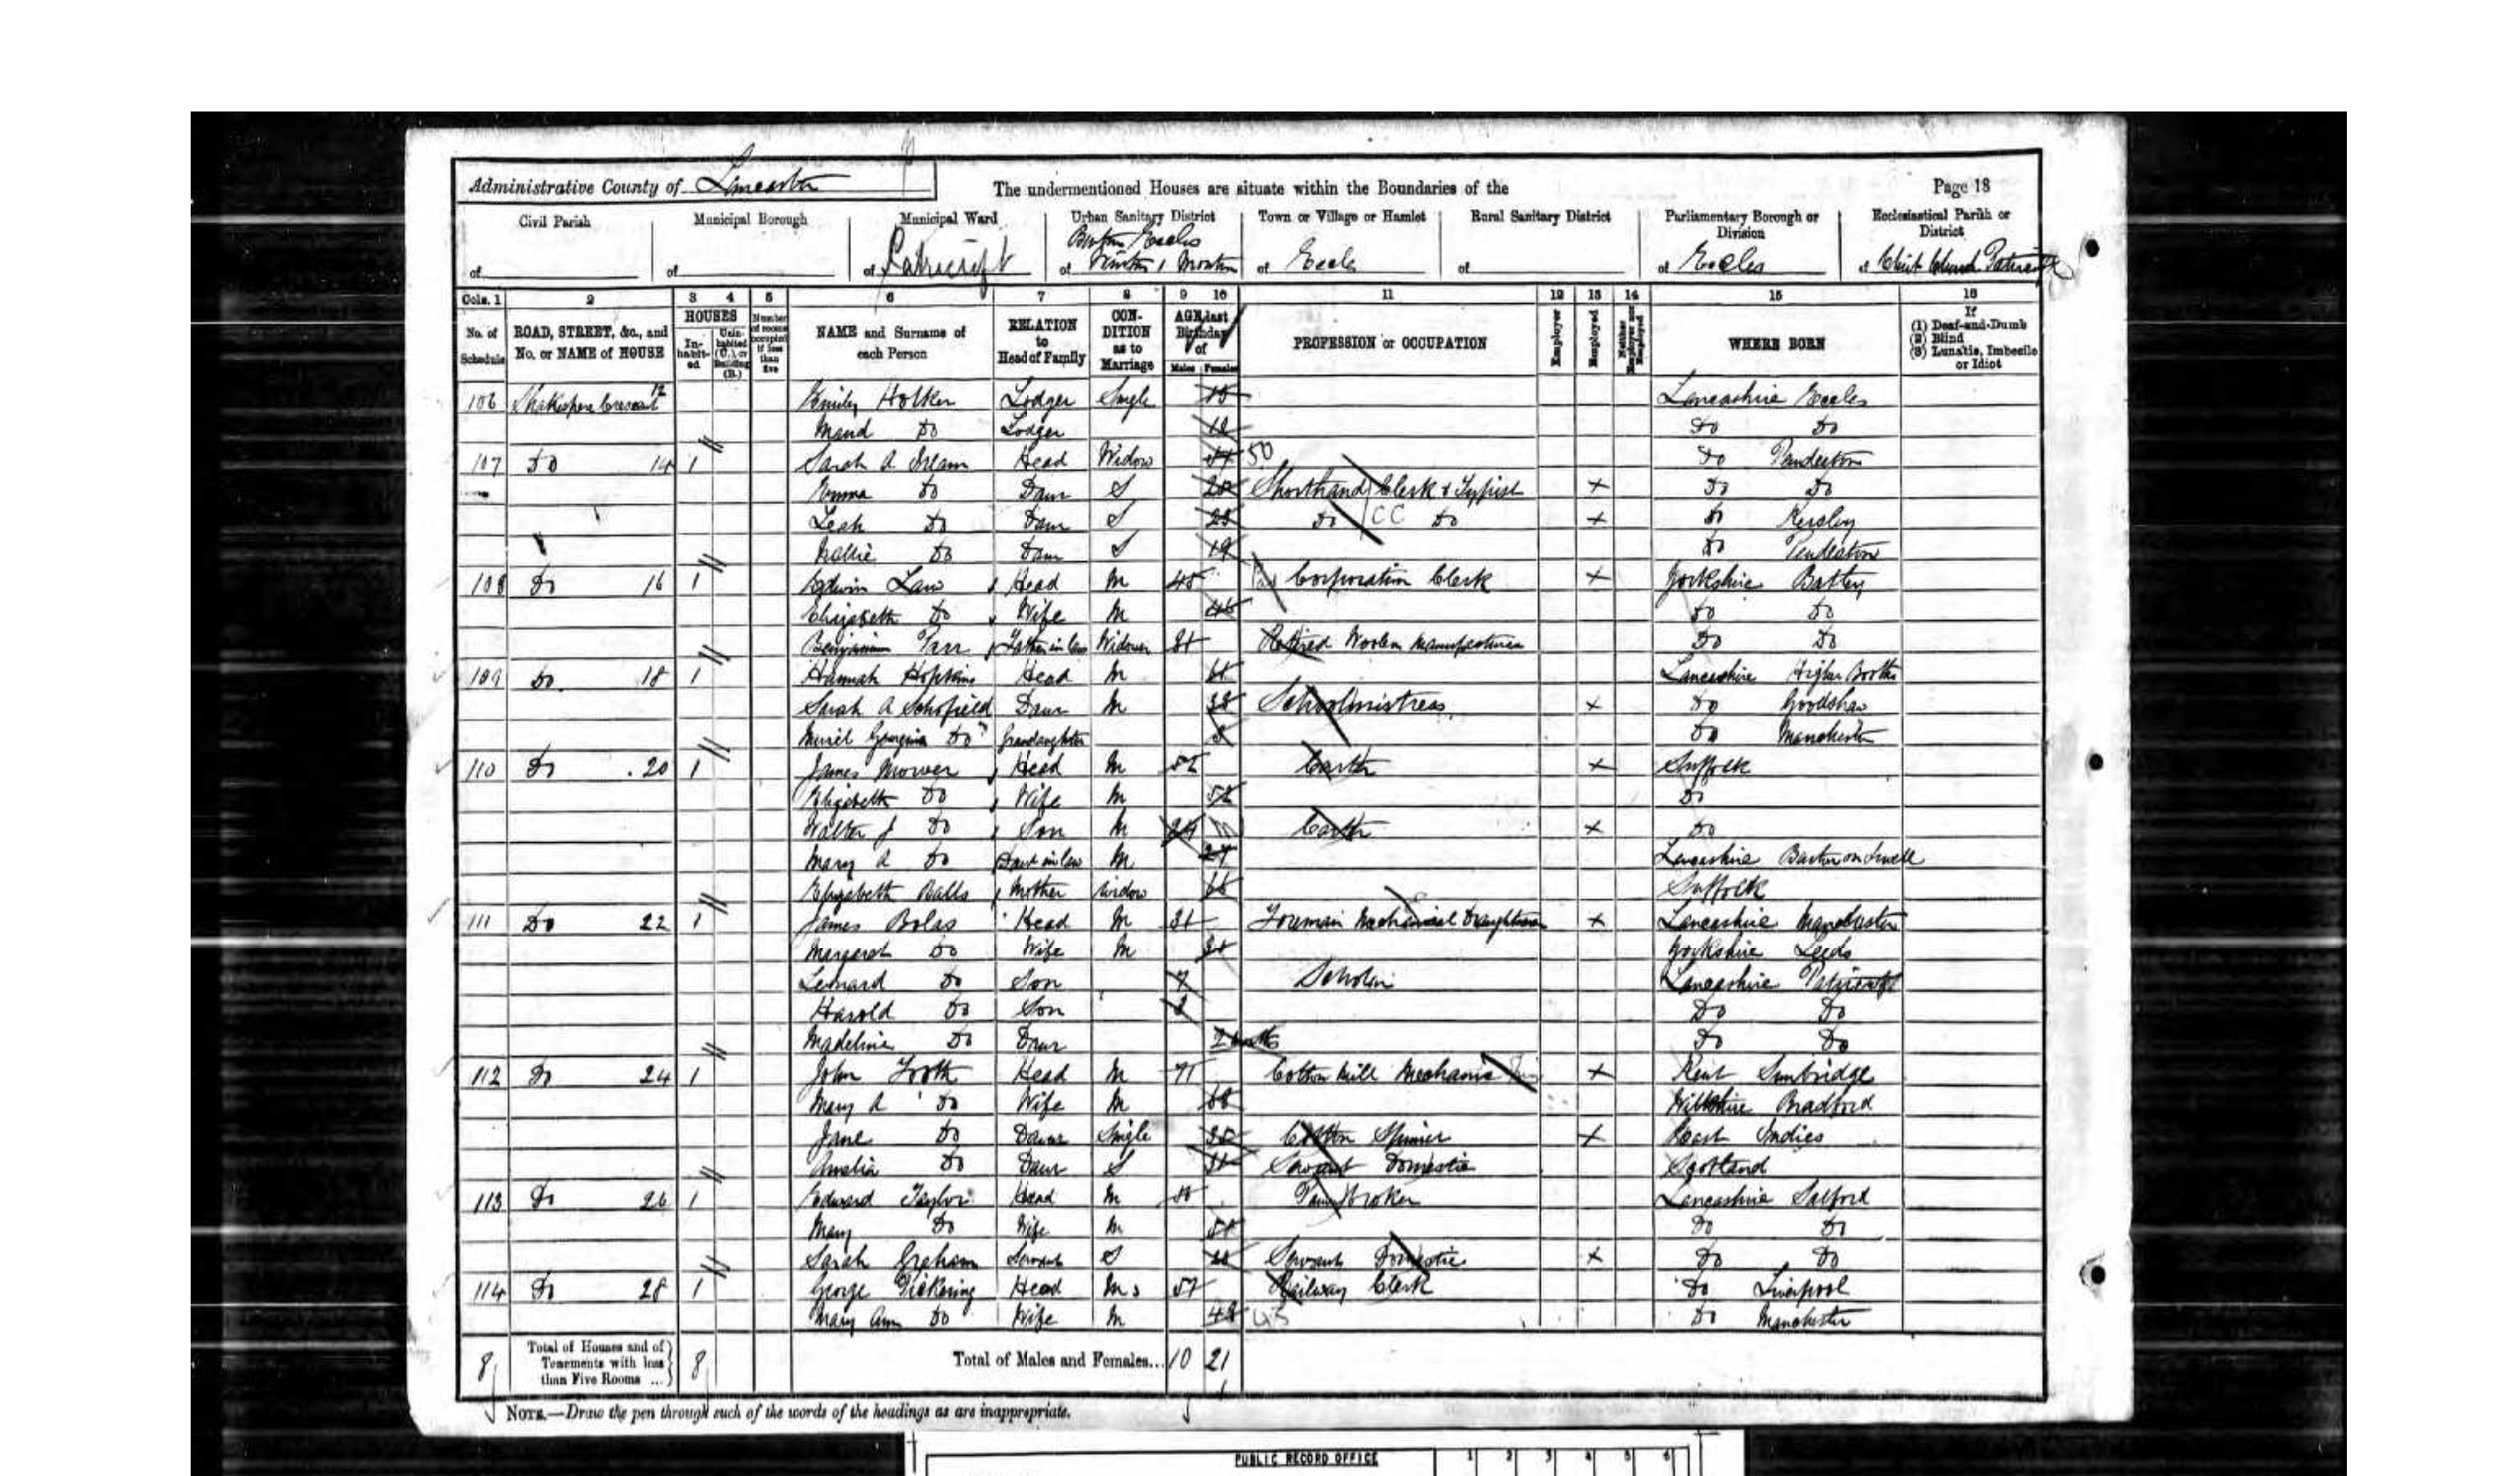 Administrative County of Lancaster
The undermentioned Houses are situate within the Boundaries of the
Page 18
Civil Parish Municipal Borough Municipal Ward Urban Sanitary District Town or Village or Hamlet Rural Sanitary District Parliamentary Borough or Division Ecclesiastical Parish or District
of of of Patricroft of Barton Eccles Winton & Monton of Eccles of of Eccles of Christ Church Patricroft
Cols. 1 2 3 4 5 6 7 8 9 10 11 12 13 14 15 16
No. of Schedule ROAD, STREET, &c., and No. or NAME of HOUSE HOUSES In-habit-ed Unin-habited (U.), or Building (B.) Number of rooms occupied if less than five NAME and Surname of each Person RELATION to Head of Family CON-DITION as to Marriage AGE last Birthday of Males Females PROFESSION or OCCUPATION Employer Employed Neither Employer nor Employed WHERE BORN If (1) Deaf-and-Dumb (2) Blind (3) Lunatic, Imbecile or Idiot
106 Shakespere Crescent 12 Emily Holker Lodger Single Lancashire Eccles
Maud Do Lodger 12 Do Do
107 Do 14 1 Sarah A Head Widow 50 Do Pendleton
Emma Do Daur S Shorthand Clerk & Typist X Do Do
Leah Do Daur S Do CC Do X Do Kersley
Do Daur S 19 Do Pendleton
108 Do 16 1 Edwin Law Head M 45 Corporation Clerk X Yorkshire Batley
Elizabeth Do Wife M 46 Do Do
Benjamin Father in law Widower 81 Retired Woolen Manufacturer Do Do
109 Do 18 1 Hannah Hopkins Head M 61 Lancashire Higher Booths
Sarah A Schofield Daur M 38 Schoolmistress X Do Goodshaw
Muriel Georgina Do Grandaughter 8 Do Manchester
110 Do 20 1 James Mower Head M 52 Carter X Suffolk
Elizabeth Do Wife M 52 Do
Walter J Do Son M Carter X Do
Mary A Do Daur in law M 27 Lancashire Barton on Irwell
Elizabeth Balls Mother Widow Suffolk
111 Do 22 1 James Bolas Head M 31 Foreman Mechanical Draughtsman X Lancashire Manchester
Margaret Do Wife M Yorkshire Leeds
Leonard Do Son 7 Scholar Lancashire Patricroft
Harold Do Son 3 Do Do
Madeline Do Daur 2 mths Do Do
112 Do 24 1 John Head M 71 Cotton Mill Mechanic X Kent Sunbridge
Mary A Do Wife M 68 Wiltshire Bradford
Jane Do Daur Single Cotton Spinner X East Indies
Amelia Do Daur S 31 Servant Domestic Scotland
113 Do 26 1 Edward Taylor Head M Pawnbroker Lancashire Salford
Mary Do Wife M Do Do
Sarah Graham Servant S Servant Domestic X Do Do
114 Do 28 1 George Pickering Head M 57 Railway Clerk Do Liverpool
Mary Ann Do Wife M 48 Do Manchester
8 Total of Houses and of Tenements with less than Five Rooms ... 8 Total of Males and Females... 10 21
NOTE.—Draw the pen through such of the words of the headings as are inappropriate.
PUBLIC RECORD OFFICE 1 2 3 4 5 6